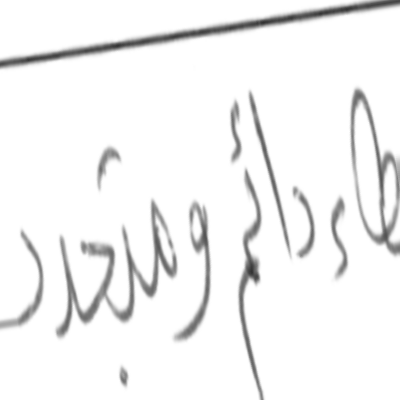 دائم ومتجدد